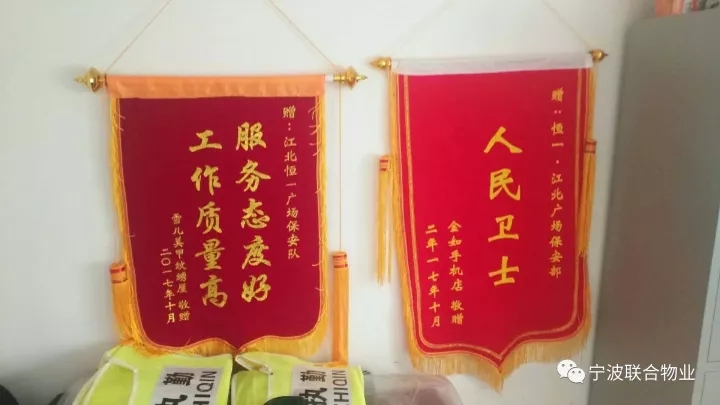 赠：江北恒一广场保安队
服务态度好
工作质量高
雪儿美甲纹绣屋 敬赠
二〇一七年十月
赠：恒一·江北广场保安部
人民卫士
金如手机店 敬赠
二年一七年十月
执勤
ZHIQIN
宁波联合物业